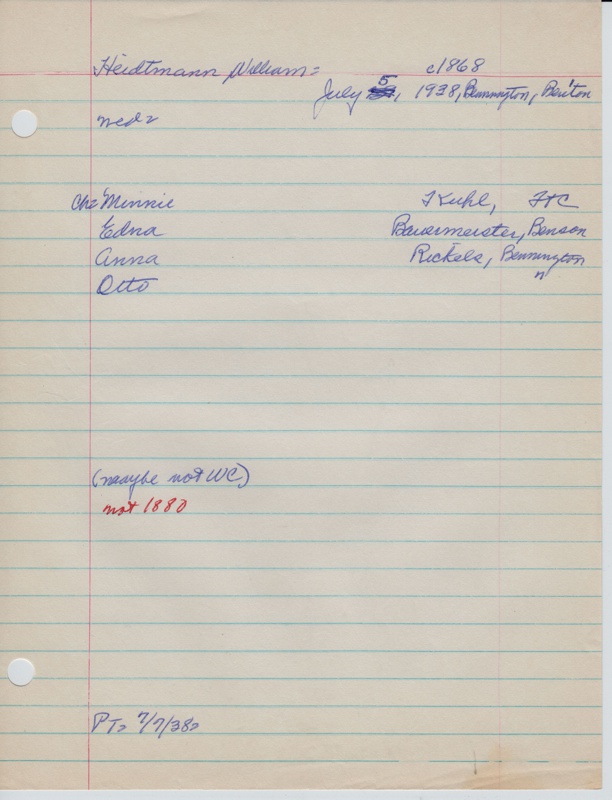 Heidtmann William: c1868
July 5, 1938, Bennington, Benton
Chs Minnie Kuhl, FtC
Edna Bauermeister, Benson
Anna Rickels, Bennington
n
Otto
(maybe not WC)
not 1880
PT: 7/7/38: